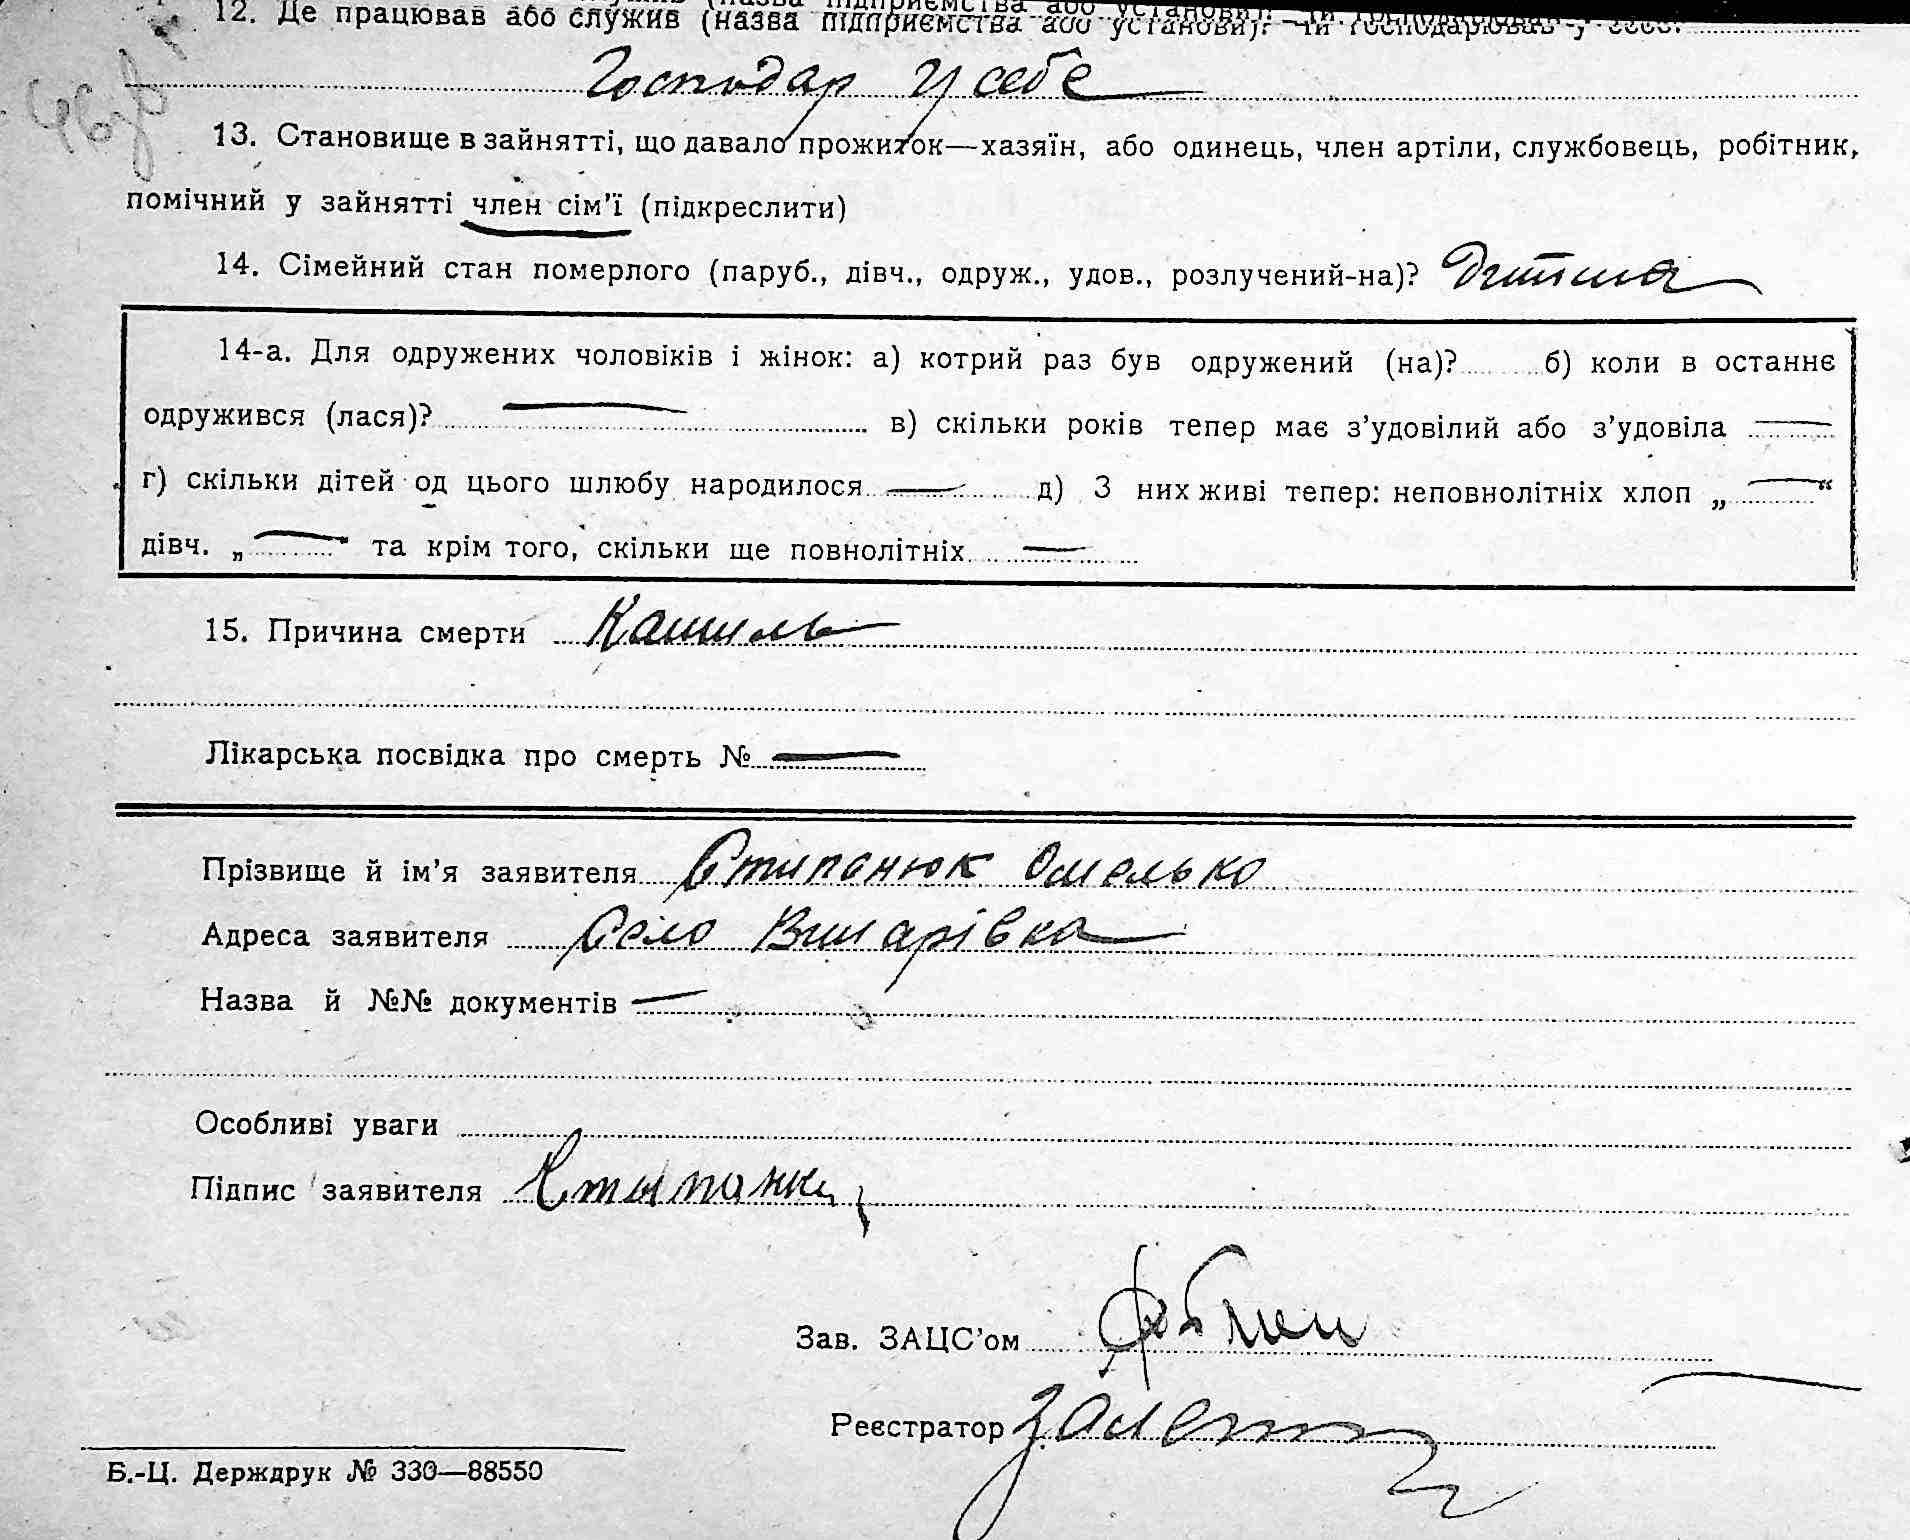 12. Де працював або служив (назва підприємства або установи). Чи господарював у себе.
Господар у себе
13. Становище в зайнятті, що давало прожиток—хазяїн, або одинець, член артіли, службовець, робітник,
помічний у зайнятті член сім'ї (підкреслити)
14. Сімейний стан померлого (паруб., дівч., одруж., удов., розлучений-на)? Дитина
14-а. Для одружених чоловіків і жінок: а) котрий раз був одружений (на)? б) коли в останнє
одружився (лася)? — в) скільки років тепер має з'удовілий або з'удовіла —
г) скільки дітей од цього шлюбу народилося — д) З них живі тепер: неповнолітніх хлоп „ — “
дівч. „ — " та крім того, скільки ще повнолітніх —
15. Причина смерти Кашиль
Лікарська посвідка про смерть № —
Прізвище й ім'я заявителя Стипанюк Омелько
Адреса заявителя Село Винарівка
Назва й №№ документів —
Особливі уваги
Підпис заявителя
Зав. ЗАЦС'ом
Реєстратор
Б.-Ц. Держдрук № 330—88550